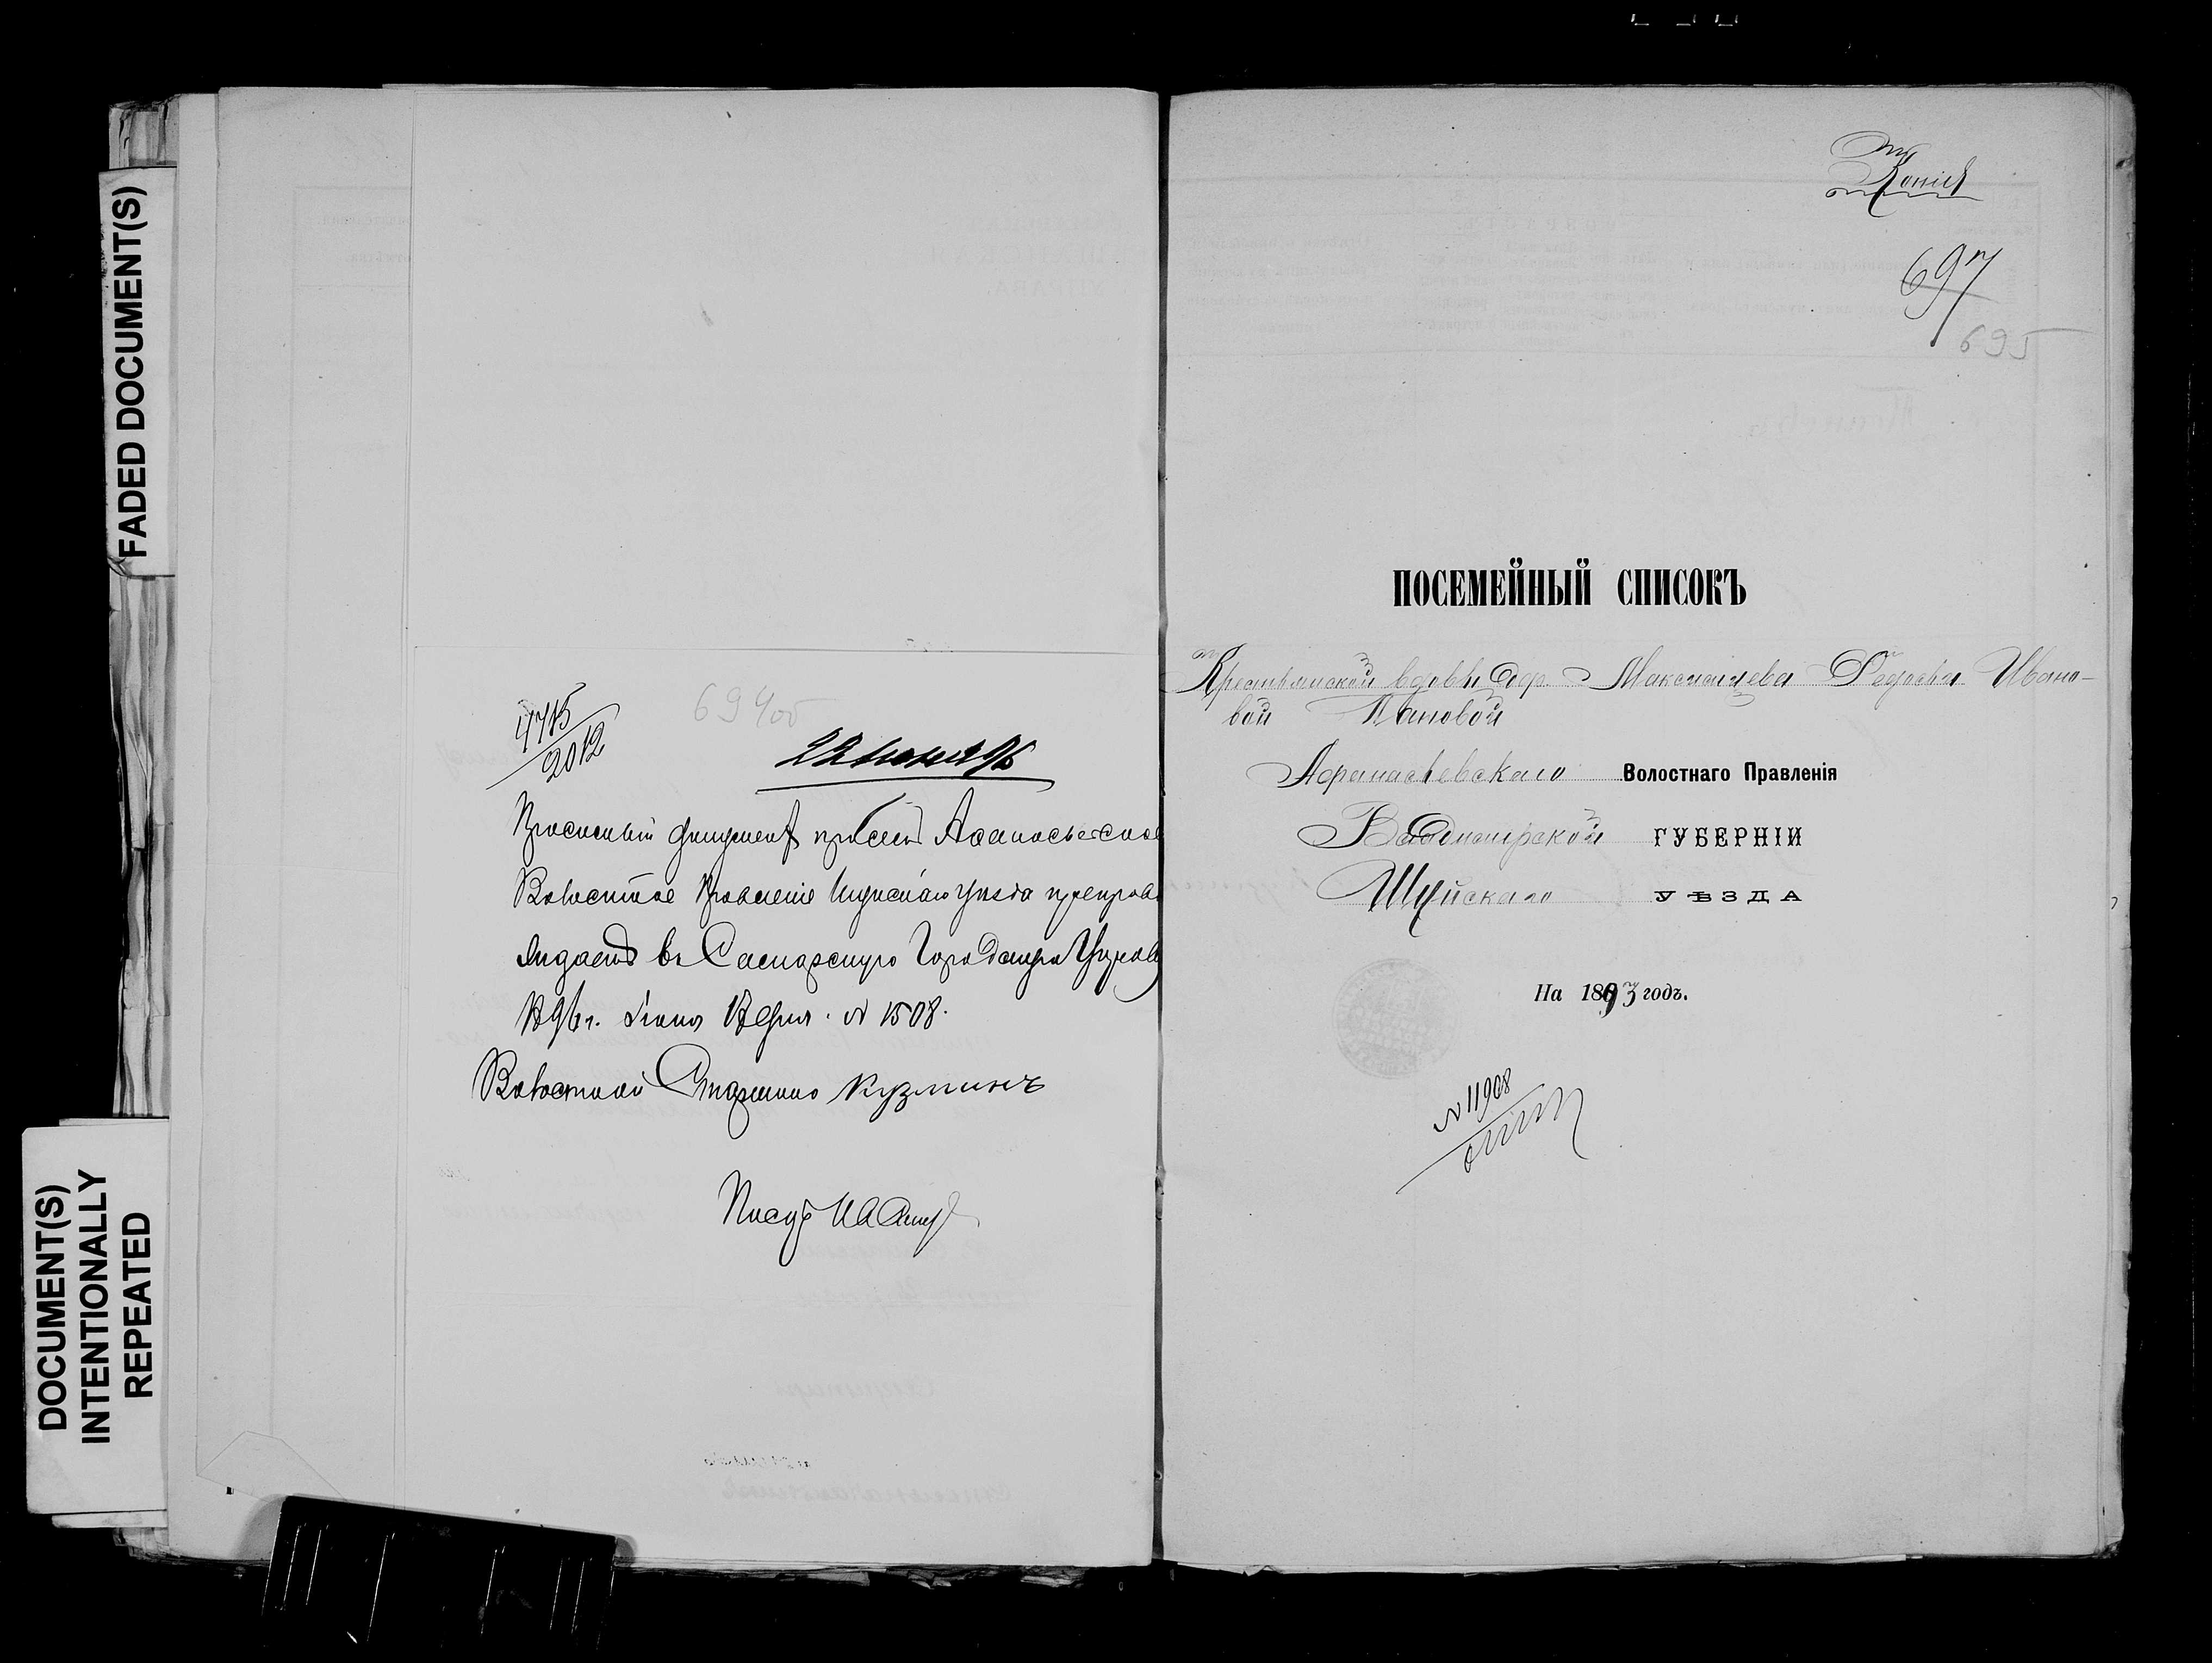 FADED DOCUMENT(S)
DOCUMENT(S)
INTENTIONALLY
REPEATED
4715
2012
694об
22 Июня 96
Просимый документъ при семъ Аѳанасьевское
Волостное Правленіе Шуйскаго Уѣзда препрово
ждаетъ въ Самарскую Городскую Управу
1896 г. Іюня дня № 1508.
Волостной Старшина Кузминъ
Писарь
Копія
697
695
ПОСЕМЕЙНЫЙ СПИСОКЪ
Крестьянской вдовы дер. Максимцева Ѳедосьи Ивано-
вой Пановой
Аѳанасьевскаго Волостнаго Правленія
Владимірской ГУБЕРНІИ
Шуйскаго УѢЗДА
На 1893 годъ.
№ 11908